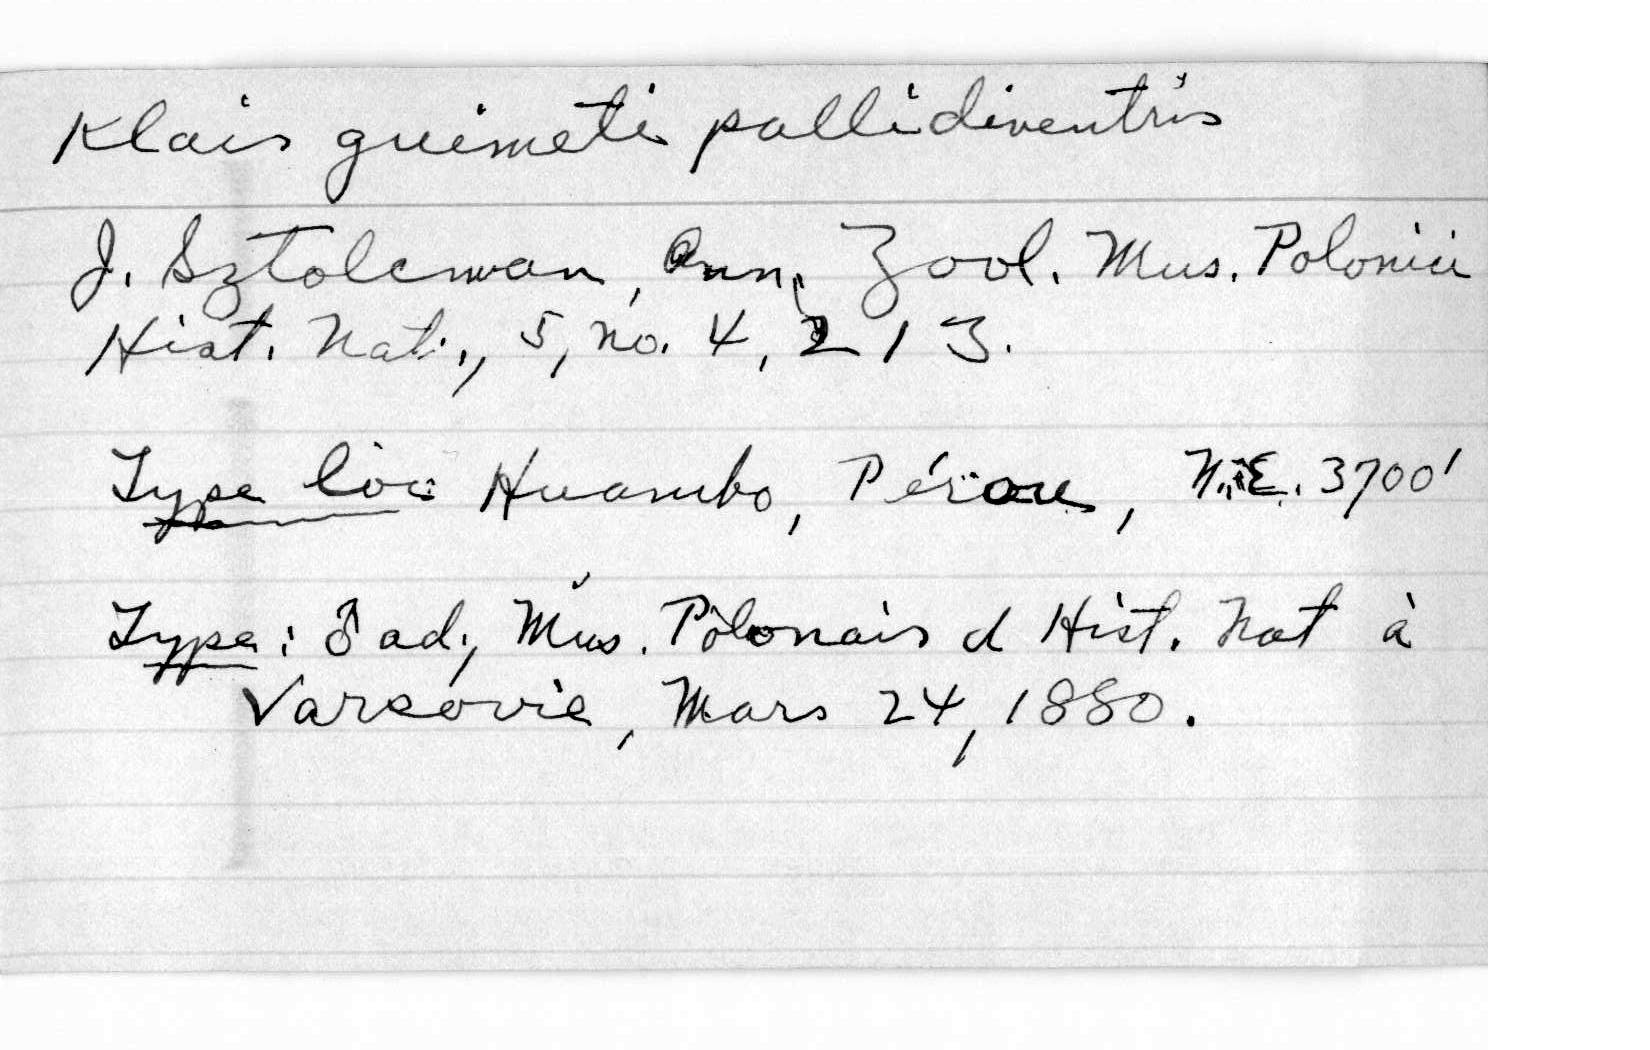 Klais guimeti pallidiventris
J. Sztolcman, Ann. Zool. Mus. Polonici
Hist. Nat., 5, no. 4, 213.
Type loc: Huambo, Pérou, N.E. 3700'
Type: ♂ ad, Mus. Polonais d Hist. Nat à
Varsovie, Mars 24, 1880.